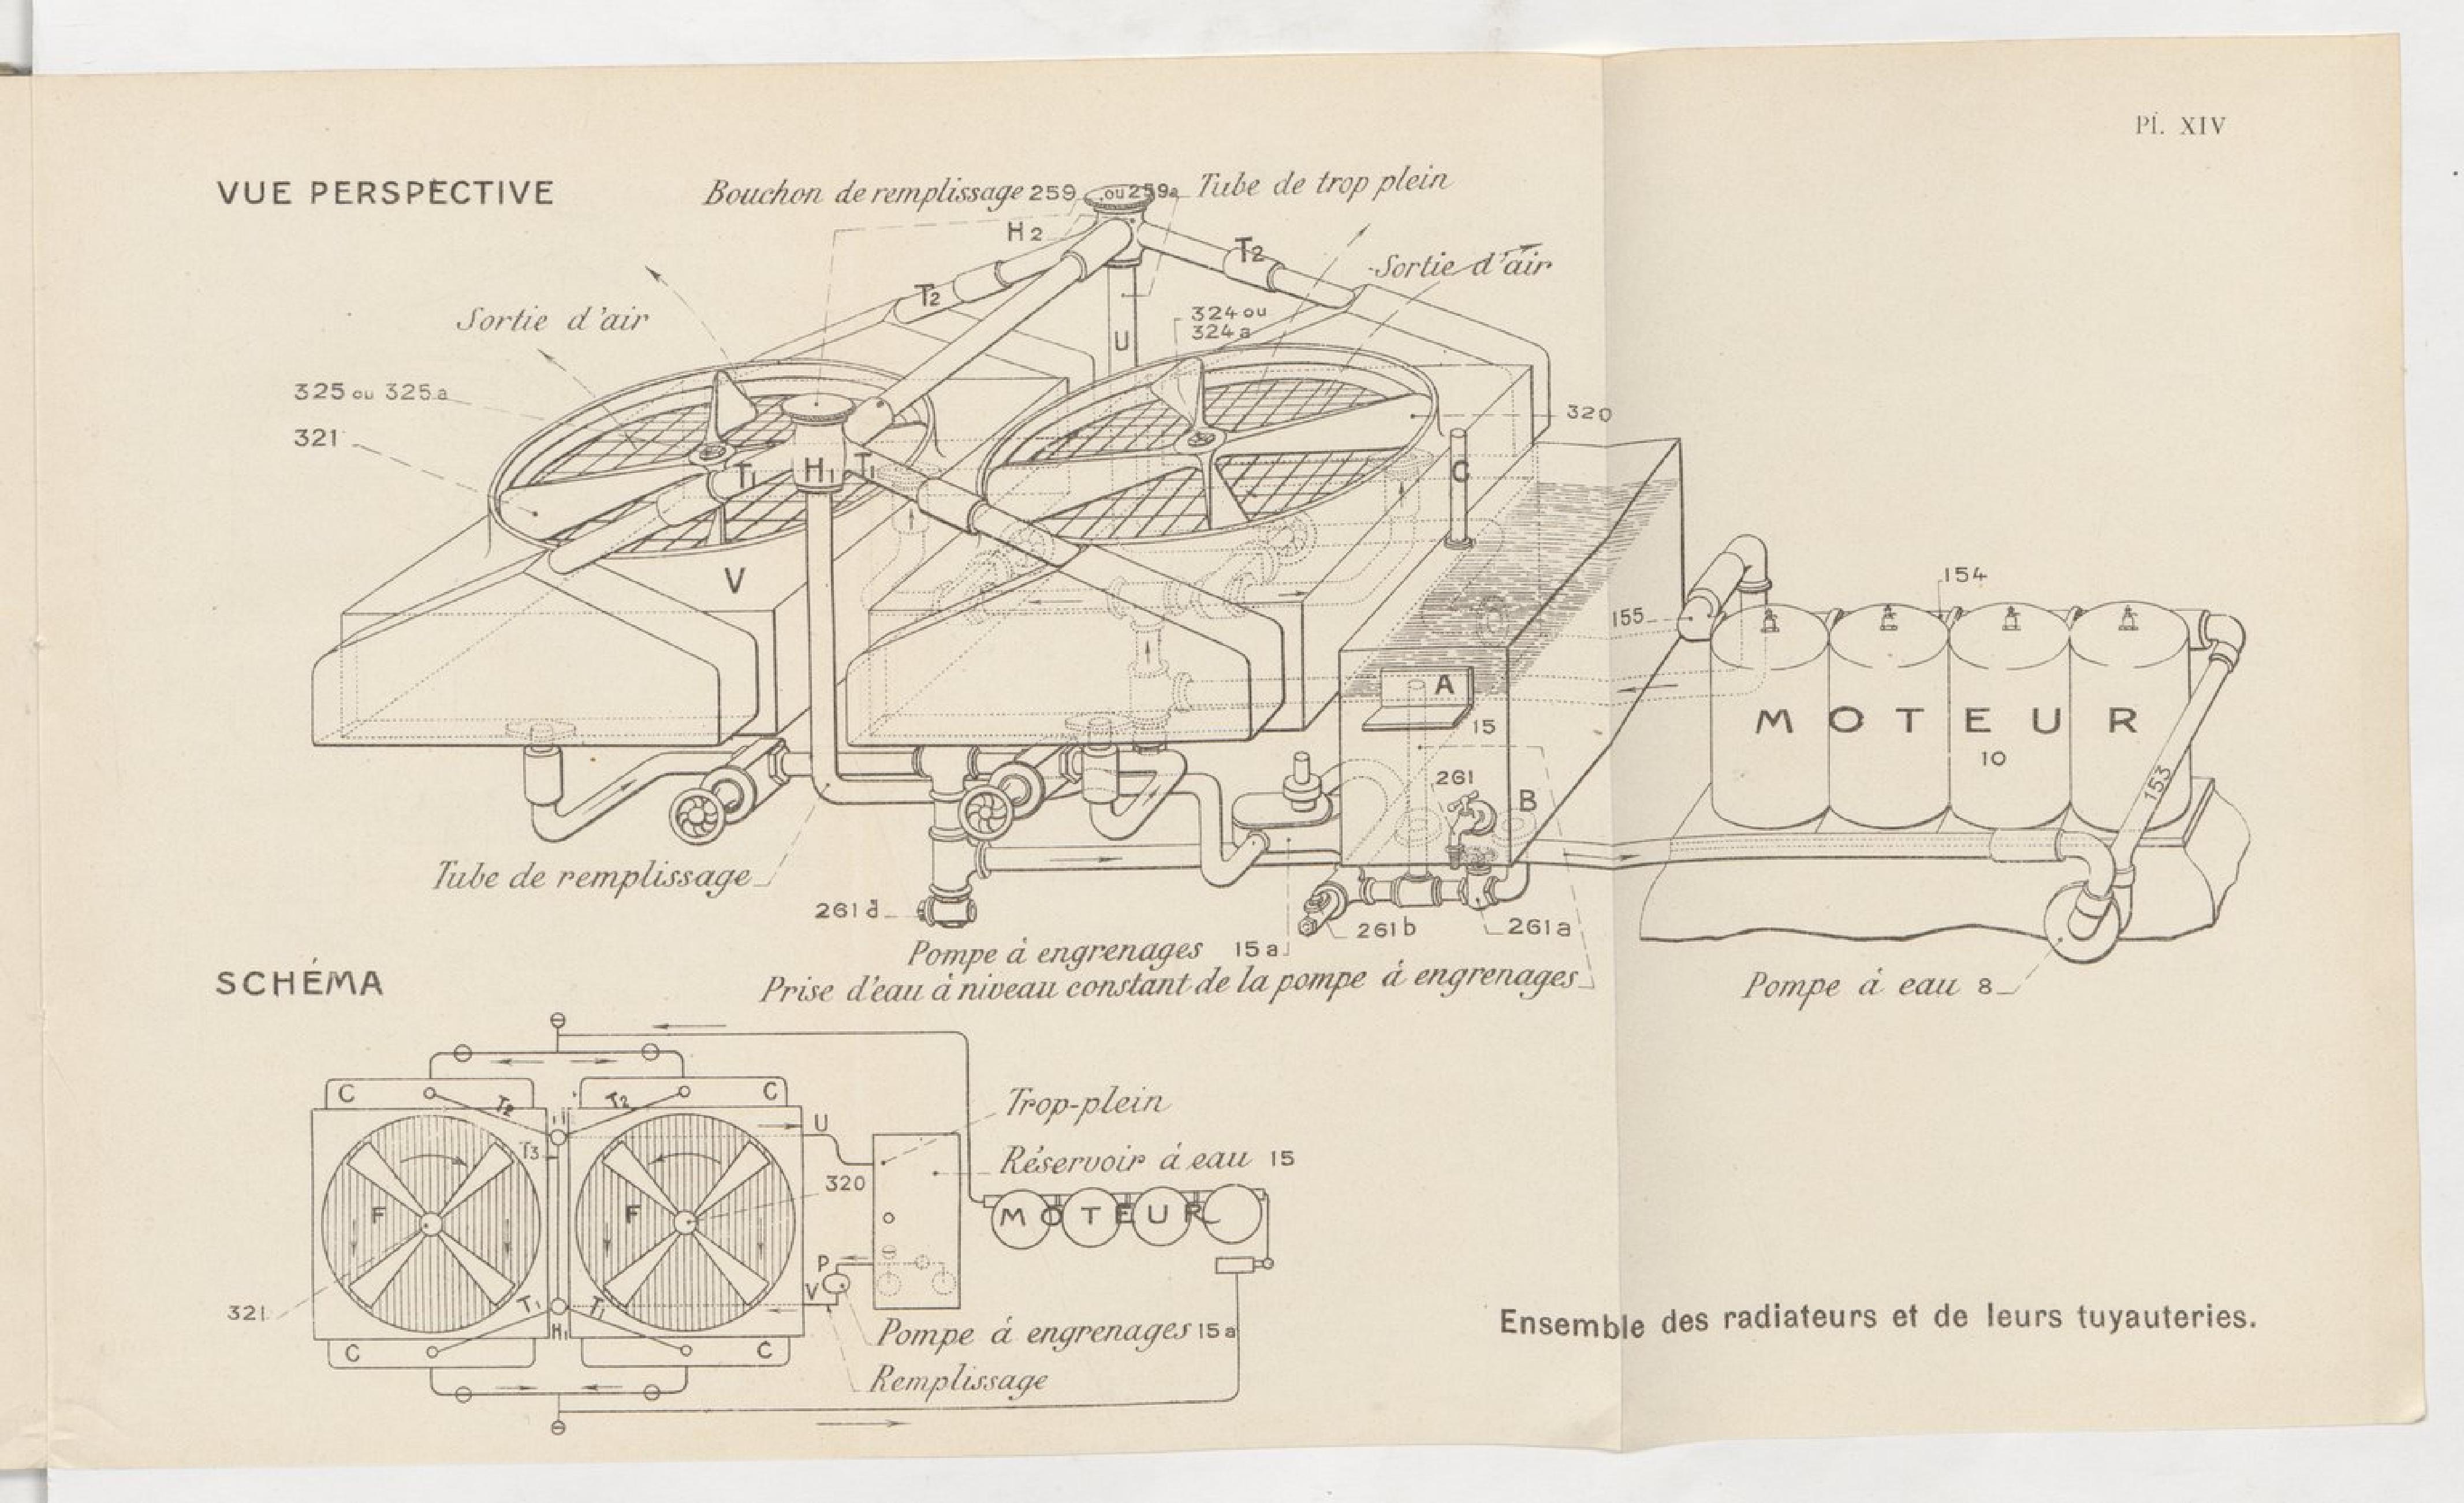 Pl. XIV
VUE PERSPECTIVE
Bouchon de remplissage 259 ou 259a
Tube de trop plein
H2
T2
Sortie d'air
T2
Sortie d'air
324 ou
324a
U
325 ou 325a
321
320
T1
H1
T1
C
V
154
155
A
MOTEUR
15
10
261
B
153
Tube de remplissage
261d
261b
261a
Pompe à engrenages 15a
Prise d'eau à niveau constant de la pompe à engrenages
Pompe à eau 8
SCHÉMA
C
T2
T2
C
U
Trop-plein
T3
Réservoir à eau 15
320
F
F
MOTEUR
P
V
321
T1
T1
H1
C
C
Pompe à engrenages 15a
Remplissage
Ensemble des radiateurs et de leurs tuyauteries.